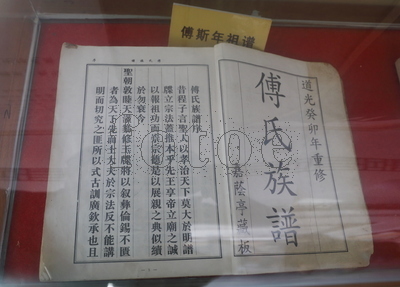 傅斯年祖譜
道光癸卯年重修
傅氏族譜
嘉蔭亭藏板
傅氏族譜序
昔程子言聖人以孝治天下莫大於明譜
牒立宗法蓋推本乎先王享帝立廟之誠
以報祖功而崇宗德是以展親之典似續
於勿衰今
聖朝敦睦天潢修玉牒將以叙彝倫錫不匱
者為天下先而士大夫於宗法反不能講
明而切究之匪所以式古訓廣欽承也且